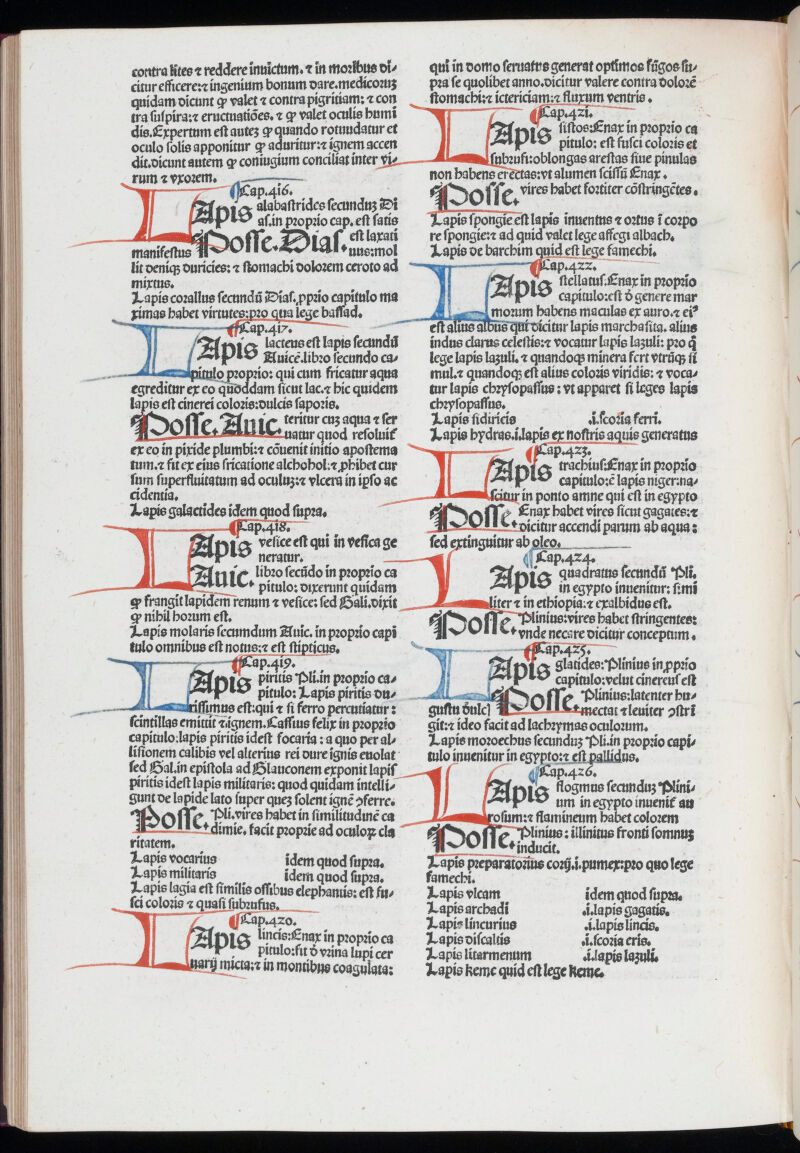 contra lites ⁊ reddere inuictum. ⁊ in moribus di⸗
citur efficere:⁊ ingenium bonum dare.medicoruꝫ
quidam dicunt ꝙ valet ⁊ contra pigritiam: ⁊ con
tra suspira:⁊ eructuatiões. ⁊ ꝙ valet oculis humi
dis.Expertum est auteꝫ ꝙ quando rotundatur et
oculo solis apponitur ꝙ aduritur:⁊ ignem accen
dit.dicunt autem ꝙ coniugium conciliat inter vi⸗
rum ⁊ vxorem.
¶Cap.416.
LApis alabastrides secunduꝫ Di
as.in proprio cap. est satis
manifestus Posse.Dias. est laxati
uus:mol
lit deniqꝫ duricies: ⁊ stomachi dolorem ceroto ad
mixtus.
Lapis corallus secundũ Dias.ꝓprio capitulo ma
ximas habet virtutes:pro qua lege bassad.
¶Cap.417.
LApis lacteus est lapis secundũ
Auicẽ.libro secundo ca⸗
pitulo proprio: qui cum fricatur aqua
egreditur ex eo quoddam sicut lac.⁊ hic quidem
lapis est cinerei coloris:dulcis saporis.
Posse.Auic. teritur cuꝫ aqua ⁊ ser
uatur quod resoluit᷑
ex eo in pixide plumbi:⁊ cõuenit initio apostema
tum.⁊ fit ex eius fricatione alchohol:⁊ ꝓhibet cur
sum superfluitatum ad oculuꝫ:⁊ vlcera in ipso ac
cidentia.
Lapis galactides idem quod supra.
¶Cap.418.
LApis vesice est qui in vesica ge
neratur.
Auic. libro secũdo in proprio ca
pitulo: dixerunt quidam
ꝙ frangit lapidem renum ⁊ vesice: sed Gali.dixit
ꝙ nihil horum est.
Lapis molaris secumdum Auic. in proprio capi
tulo omnibus est notus:⁊ est stipticus.
¶Cap.419.
LApis piritis Pli.in proprio ca⸗
pitulo: Lapis piritis du⸗
rissimus est:qui ⁊ si ferro percutiatur:
scintillas emittit ⁊ignem.Cassius felix in proprio
capitulo:lapis piritis idest focaria : a quo per al⸗
lisionem calibis vel alterius rei dure ignis euolat
sed Gal.in epistola ad Glauconem exponit lapis
piritis idest lapis militaris: quod quidam intelli⸗
gunt de lapide lato super queꝫ solent ignẽ ↄferre.
Posse. Pli.vires habet in similitudinẽ ca
dimie. facit proprie ad oculoꝝ cla
ritatem.
Lapis vocarius idem quod supra.
Lapis militaris idem quod supra.
Lapis lagia est similis ossibus elephantis: est fu⸗
sci coloris ⁊ quasi subrufus.
¶Cap.420.
LApis lincis:Enax in proprio ca
pitulo:fit ð vrina lupi cer
uarij micta:⁊ in montibus coagulata:
qui in domo seruatus generat optimos fũgos su⸗
pra se quolibet anno.dicitur valere contra dolorẽ
stomachi:⁊ ictericiam:⁊ fluxum ventris .
¶Cap.421.
LApis sistos:Enax in proprio ca
pitulo: est fusci coloris et
subrufi:oblongas arestas siue pinulas
non habens erectas:vt alumen scissũ Enax .
Posse. vires habet fortiter cõstringẽtes .
Lapis spongie est lapis inuentus ⁊ ortus ĩ corpo
re spongie:⁊ ad quid valet lege affegi albach.
Lapis de barchim quid est lege famechi.
¶Cap.422.
LApis stellatus.Enax in proprio
capitulo:est ð genere mar
morum habens maculas ex auro.⁊ eiꝰ
est alius albus qui dicitur lapis marchasita. alius
indus clarus celestis:⁊ vocatur lapis lazuli: pro q̃
lege lapis lazuli. ⁊ quandoqꝫ minera fert vtrũqꝫ si
mul.⁊ quandoqꝫ est alius coloris viridis: ⁊ voca⸗
tur lapis chrysopassus : vt apparet si leges lapis
chrysopassus.
Lapis sidiricis .i.scoria ferri.
Lapis hydras.i.lapis ex nostris aquis generatus
¶Cap.423.
LApis trachius:Enax in proprio
capitulo:ẽ lapis niger:na⸗
scitur in ponto amne qui est in egypto
Posse. Enax habet vires sicut gagates:⁊
dicitur accendi parum ab aqua :
sed extinguitur ab oleo.
¶Cap.424.
LApis quadratus secundũ Pli.
in egypto inuenitur: simi
liter ⁊ in ethiopia:⁊ exalbidus est.
Posse. Plinius:vires habet stringentes:
vnde necare dicitur conceptum .
¶Cap.425.
LApis glatides:Plinius in ꝓprio
capitulo:velut cinereus est
gustu dulc] Posse. Plinius:latenter hu⸗
mectat ⁊ leuiter ↄstri
git:⁊ ideo facit ad lachrymas oculorum.
Lapis moroechus secunduꝫ Pli.in proprio capi⸗
tulo inuenitur in egypto:⁊ est pallidus.
¶Cap.426.
LApis flogmus secunduꝫ Plini⸗
um in egypto inuenit᷑ au
rosum:⁊ flamineum habet colorem
Posse. Plinius : illinitus fronti somnuꝫ
inducit.
Lapis preparatorius corij.i.pumex:pro quo lege
famechi.
Lapis vlcam idem quod supra.
Lapis archadi .i.lapis gagatis.
Lapis lincurius .i.lapis lincis.
Lapis discaltis .i.scoria eris.
Lapis litarmenum .i.lapis lazuli.
Lapis keme quid est lege keme.